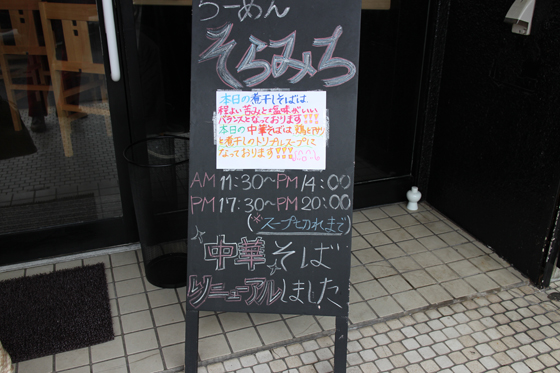 らーめん
そらみち
本日の煮干しそばは
程よい苦みと塩味がいい
バランスとなっております!!!
本日の中華そばは鶏とアサリ
と煮干しのトリプルスープに
なっております!!!
AM 11:30～PM 14:00
PM 17:30～PM 20:00
(※スープ切れまで)
中華そば
リニューアルしました